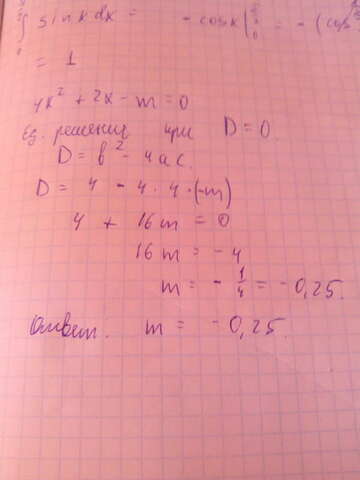 ∫ sin x dx = - cos x | = - (cos
= 1
4x² + 2x - m = 0
Ед. решений при D = 0.
D = b² - 4ac.
D = 4 - 4 · 4 · (-m)
4 + 16m = 0
16m = -4
m = - 1/4 = - 0,25.
Ответ. m = - 0,25.